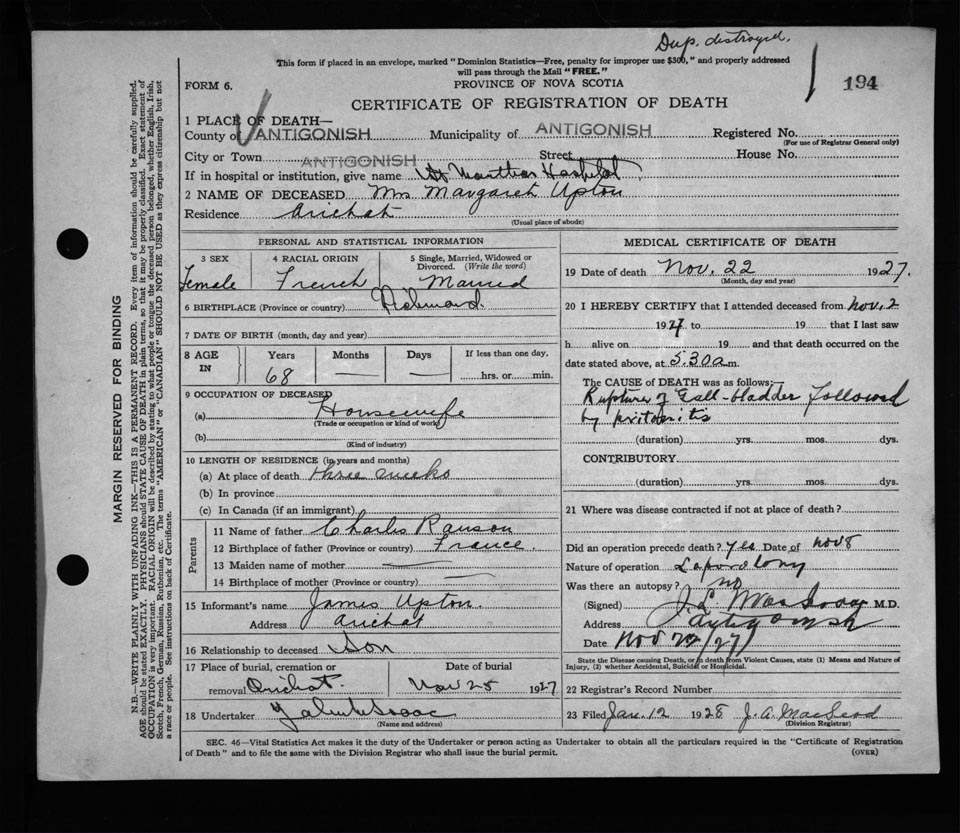 Dup. destroyed.
This form if placed in an envelope, marked "Dominion Statistics—Free, penalty for improper use $300," and properly addressed
will pass through the Mail "FREE."
FORM 6.
PROVINCE OF NOVA SCOTIA
194
CERTIFICATE OF REGISTRATION OF DEATH
1 PLACE OF DEATH—
County of ANTIGONISH Municipality of ANTIGONISH Registered No.
(For use of Registrar General only)
City or Town ANTIGONISH Street House No.
If in hospital or institution, give name St Marthas Hospital
2 NAME OF DECEASED Mrs Margaret Upton
Residence Arichat
(Usual place of abode)
PERSONAL AND STATISTICAL INFORMATION
3 SEX 4 RACIAL ORIGIN 5 Single, Married, Widowed or
Divorced. (Write the word)
Female French Married
6 BIRTHPLACE (Province or country) Richmond.
7 DATE OF BIRTH (month, day and year)
8 AGE IN Years Months Days If less than one day,
68 — — hrs. or min.
9 OCCUPATION OF DECEASED
(a) Housewife
(Trade or occupation or kind of work)
(b)
(Kind of industry)
10 LENGTH OF RESIDENCE (in years and months)
(a) At place of death three weeks
(b) In province
(c) In Canada (if an immigrant)
Parents
11 Name of father Charles Ranson
12 Birthplace of father (Province or country) France.
13 Maiden name of mother —
14 Birthplace of mother (Province or country) —
15 Informant's name James Upton.
Address Arichat
16 Relationship to deceased Son
17 Place of burial, cremation or Date of burial
removal Arichat. Nov 25 1927
18 Undertaker
(Name and address)
MEDICAL CERTIFICATE OF DEATH
19 Date of death Nov. 22 1927.
(Month, day and year)
20 I HEREBY CERTIFY that I attended deceased from Nov. 2
1927 to 19 that I last saw
h alive on 19 and that death occurred on the
date stated above, at 5.30 a m.
The CAUSE OF DEATH was as follows:—
Rupture of Gall-bladder followed
by peritonitis
(duration) yrs. mos. dys.
CONTRIBUTORY
(duration) yrs. mos. dys.
21 Where was disease contracted if not at place of death?
Did an operation precede death? Yes Date of Nov 8
Nature of operation Laparotomy
Was there an autopsy? no
(Signed) M.D.
Address Antigonish
Date Nov 22/27
State the Disease causing Death, or in death from Violent Causes, state (1) Means and Nature of
Injury, (2) whether Accidental, Suicidal or Homicidal.
22 Registrar's Record Number
23 Filed Jan. 12 1928 J. A. MacLeod
(Division Registrar)
SEC. 46—Vital Statistics Act makes it the duty of the Undertaker or person acting as Undertaker to obtain all the particulars required in the "Certificate of Registration
of Death" and to file the same with the Division Registrar who shall issue the burial permit.
(OVER)
MARGIN RESERVED FOR BINDING
N.B.—WRITE PLAINLY WITH UNFADING INK—THIS IS A PERMANENT RECORD. Every item of information should be carefully supplied.
AGE should be stated EXACTLY. PHYSICIANS should STATE CAUSE OF DEATH in plain terms, so that it may be properly classified. Exact statement of
OCCUPATION is very important. RACIAL ORIGIN will be described by stating to what people or tongue the deceased person belonged, whether English, Irish,
Scotch, French, German, Russian, Ruthenian, etc. The terms "AMERICAN" or "CANADIAN" SHOULD NOT BE USED as they express citizenship but not
a race or people. See instructions on back of Certificate.